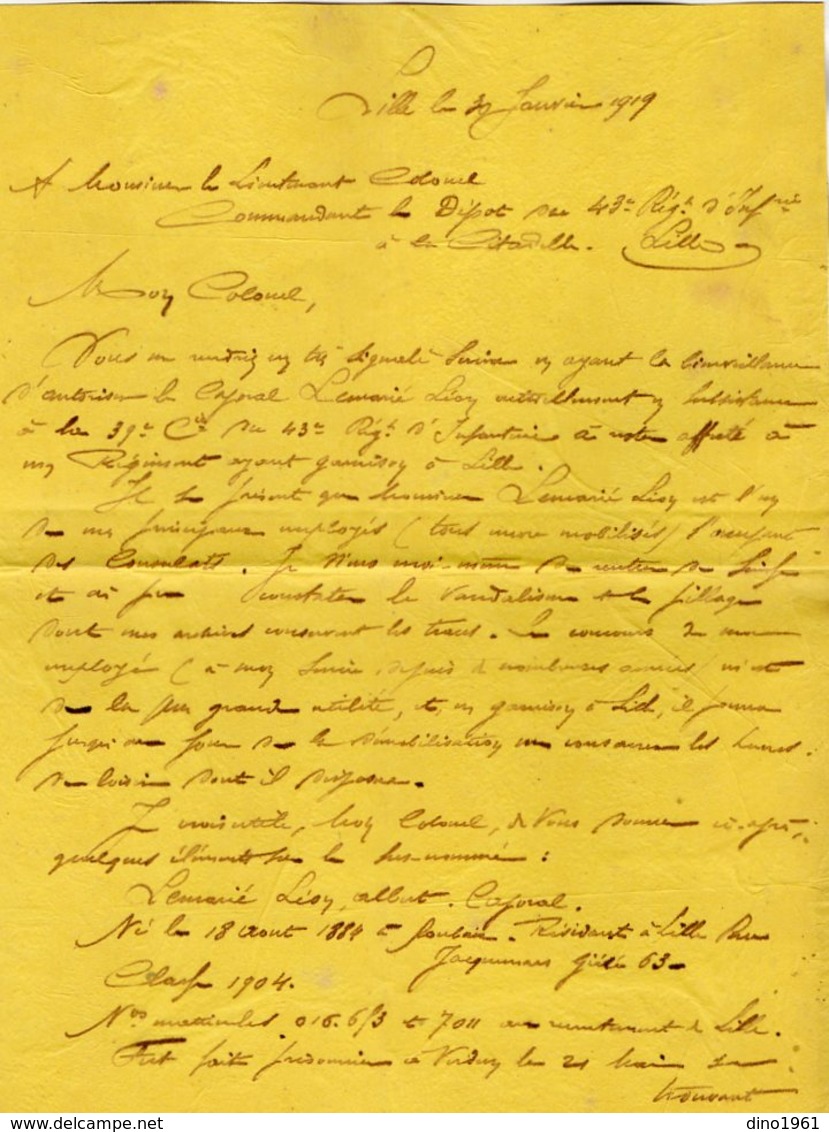 Lille le 30 Janvier 1919
A Monsieur le Lieutenant Colonel
Commandant le Dépot du 43e Rég.t d'Inf.rie
à la Citadelle. Lille
Mon Colonel,
Vous me rendriez un très signalé Service en ayant la bienveillance
d'autoriser le Caporal Lemarié Léon actuellement en subsistance
à la 39e Cie du 43e Rég.t d'Infanterie à rester affecté à
un Régiment ayant garnison à Lille.
Il se présent que Monsieur Lemarié Léon est l'un
de mes principaux employés (tous encore mobilisés)
des Consulats. Je Viens moi-même de rentrer de
et ai pu constater le Vandalisme et le pillage
dont mes archives conservent les traces. Le concours de mon
employé (à mon Service depuis de nombreuses années) m'est
de la plus grande utilité, et, en garnison à Lille, il pourra
jusqu'au jour de la démobilisation me consacrer les heures
de loisir dont il disposera.
Je crois utile, Mon Colonel, de Vous donner ci-après
quelques éléments sur le sus-nommé :
Lemarié Léon, albert. Caporal.
Né le 18 aout 1884 à Roubaix. Résidant à Lille Rue
Jacquemars Giélée 63
Classe 1904.
Nos matricules 016.613 et 7011 au recrutement de Lille.
Fut fait prisonnier à Verdun le 21 Mai
dino1961